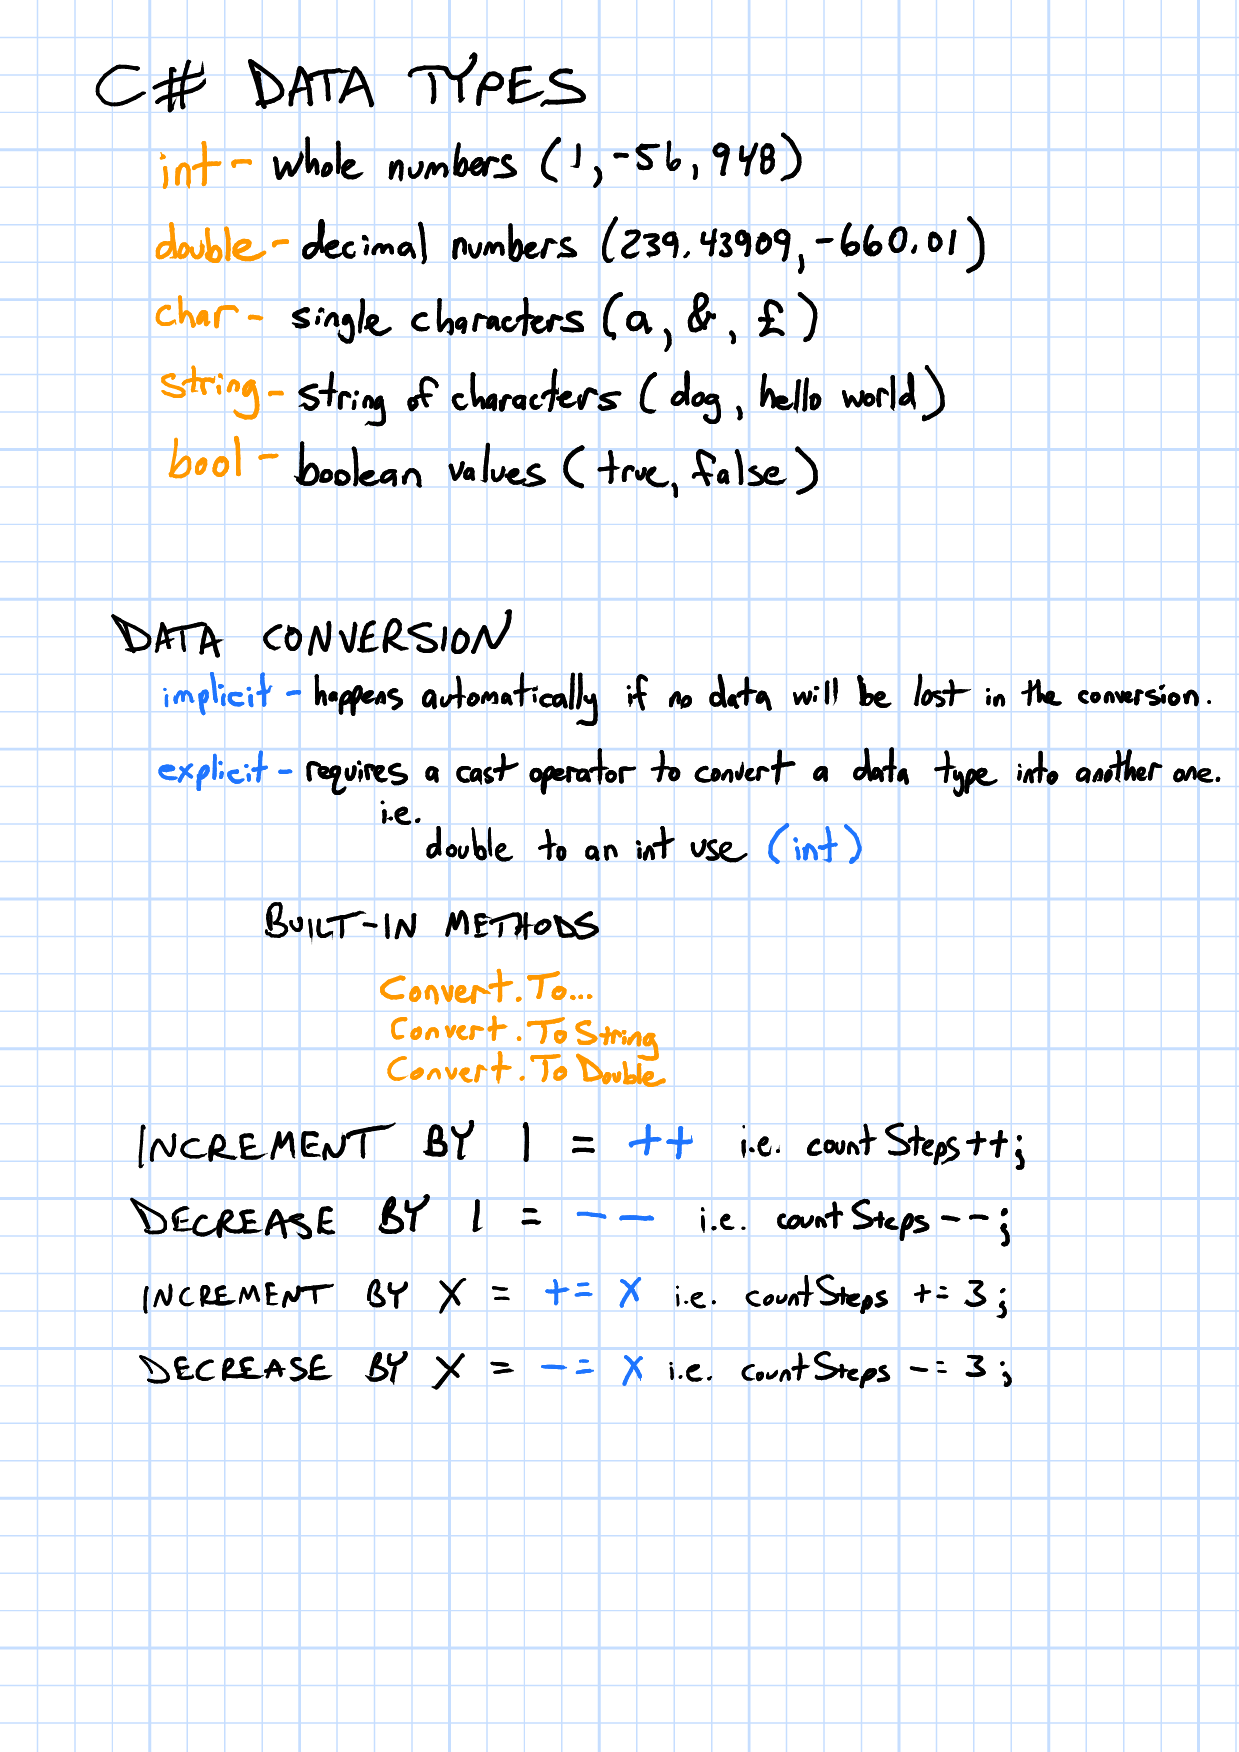 C# DATA TYPES
int - whole numbers (1, -56, 948)
double - decimal numbers (239.43909, -660.01)
char - single characters (a, &, £)
string - string of characters (dog, hello world)
bool - boolean values (true, false)
DATA CONVERSION
implicit - happens automatically if no data will be lost in the conversion.
explicit - requires a cast operator to convert a data type into another one.
i.e.
double to an int use (int)
BUILT-IN METHODS
Convert.To...
Convert.ToString
Convert.ToDouble
INCREMENT BY 1 = ++ i.e. countSteps++;
DECREASE BY 1 = -- i.e. countSteps--;
INCREMENT BY X = += X i.e. countSteps += 3;
DECREASE BY X = -= X i.e. countSteps -= 3;